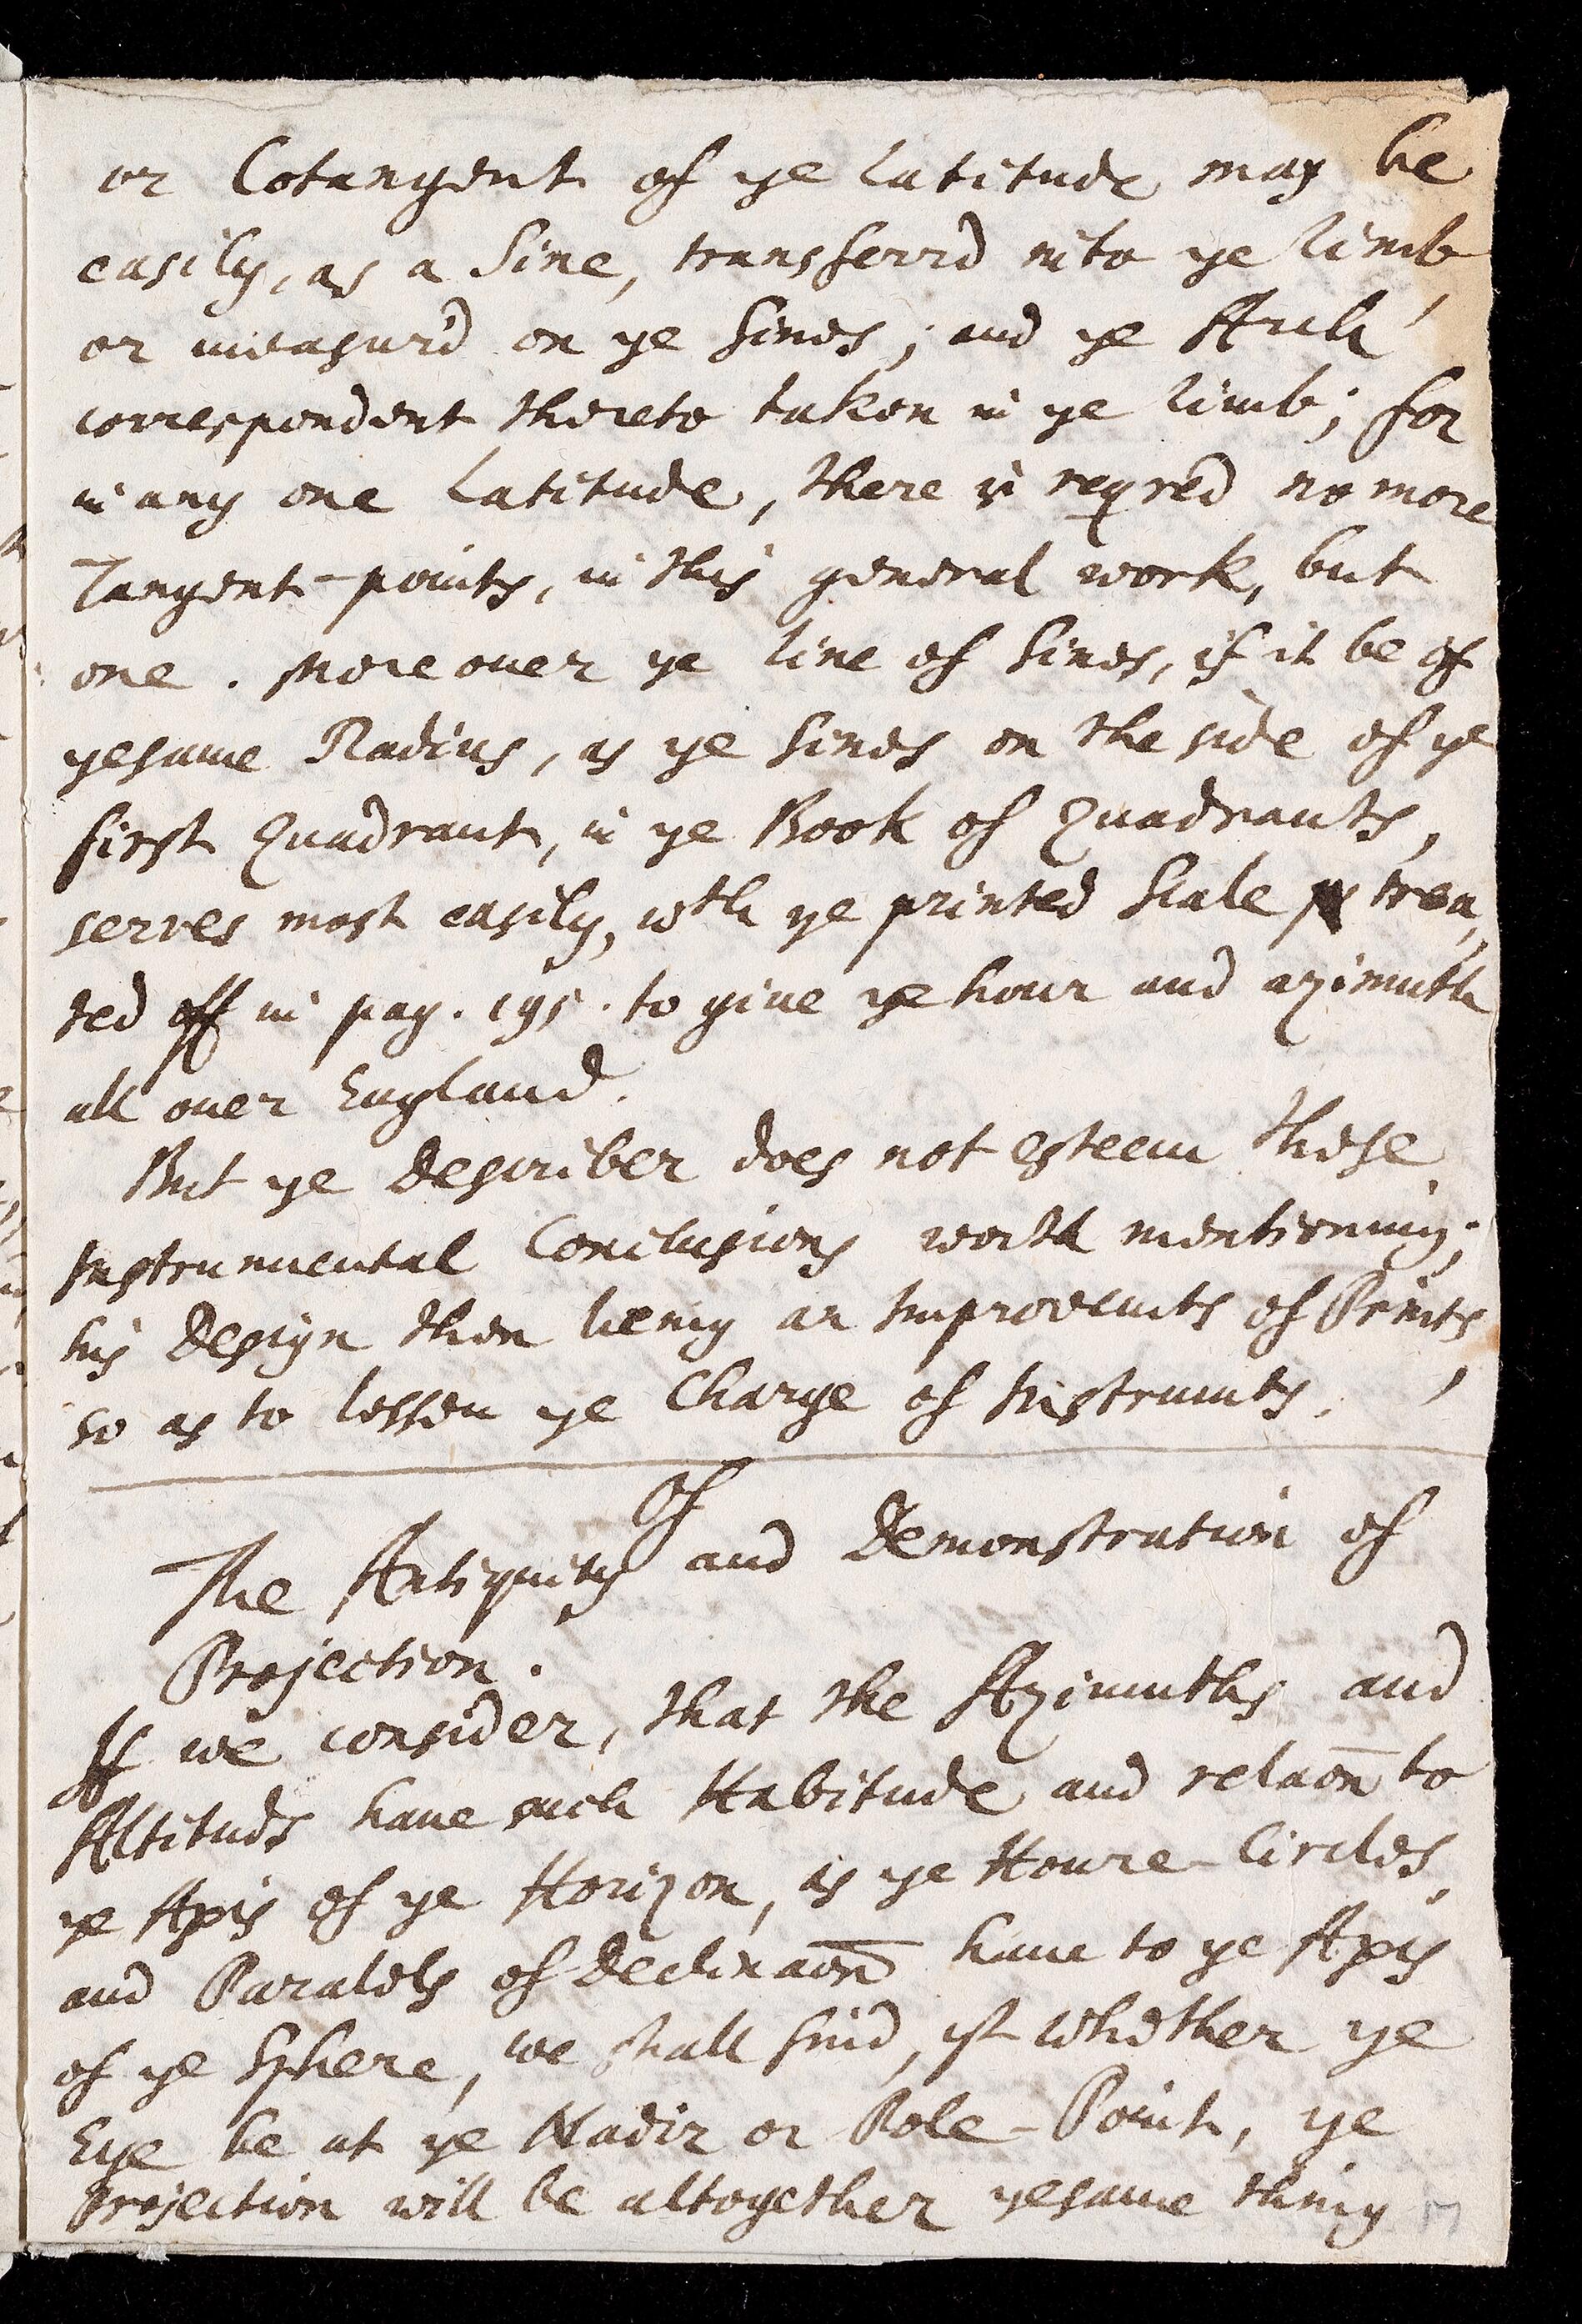 or Cotangent of ye Latitude may be
easily, as a Sine, transferrd into ye limb,
or measur'd on ye Sines; and ye Arch
correspondent thereto taken in ye limb; for
in any one Latitude, there is reqred no more
Tangent-points, in this general work, but
one. Moreover ye line of Sines, if it be of
yesame Radius, as ye Sines on the side of ye
first Quadrant, in ye Book of Quadrants,
serves most easily, wth ye printed Scale trea,,
ted off in pag. 195. to give ye hour and azimuth
all over England.
But ye Describer does not esteem these
Instrumental Conclusions worth mentioning;
his Design then being an Improvemts of Prints,
so as to lessen ye Charge of Instrumts.
Of
The Antiquity and Demonstration of
Projection.
If we consider, that the Azimuths and
Altituds haue such Habitude and relaōn to
ye Axis of ye Horizon, as ye Houre-Circles,
and Paralels of Declinaōn haue to ye Axis
of ye Sphere, we shall find, yt whether ye
Eye be at ye Nadir or Pole-Point, ye
Projection will be altogether yesame thing
17